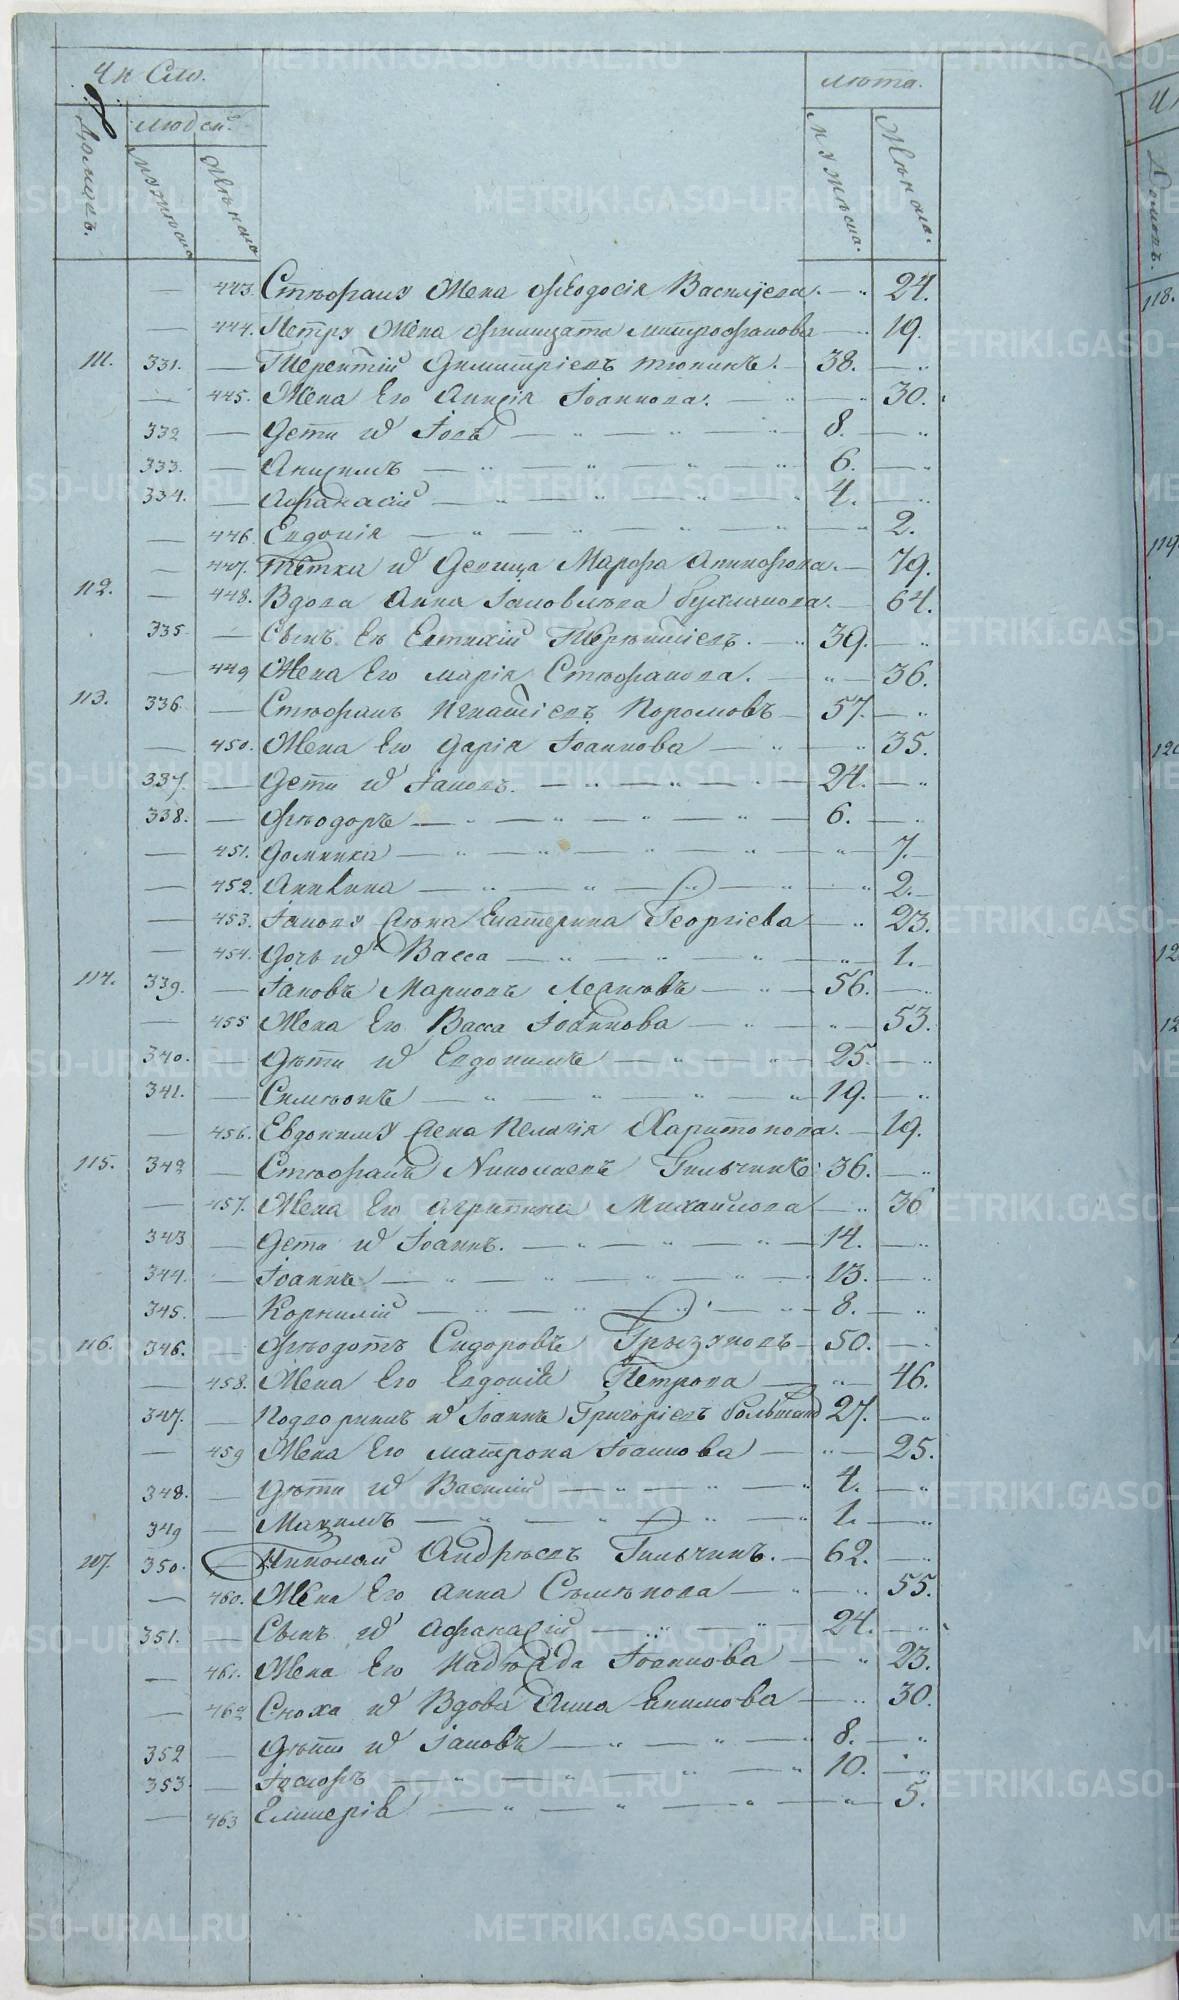 Число.
лѣта.
Домовъ.
людей.
мужеска
женска
мужеска.
женска.
443. Стефану жена Феодосія Васильева. 24.
444. Петру жена Митрофанова 19.
111. 331. Терентій Димитріевъ 38.
445. Жена Его Аннсія Іоаннова. 30.
332 Дети иъ Іовъ 8.
333. Анисимъ 6.
334. Афанасій 4.
446. Евдокія 2.
447. Тетка иъ Девица Марфа 79.
112. 448. Вдова Анна Іаковлева 64.
335 Сынъ Ея Евтихій Терентіевъ. 39.
449 Жена Его марія Стефанова. 36.
113. 336 Стефанъ Игнатіевъ Коромовъ 57.
450. Жена Его Дарія Іоаннова 35.
337. Дети иъ Іаковъ. 24.
338. Феодоръ 6.
451. Домника 7.
452. Аникина 2.
453. Іакову жена Екатерина Георгіева 23.
454. Дочь иъ Васса 1.
114. 339. Іаковъ Марковъ 56.
455 Жена Его Васса Іоаннова 53.
340. Дѣти иъ Евдокимъ 25.
341. Симеонъ 19.
456. Евдокиму жена Пелагія Харитонова. 19.
115. 342 Стефанъ Николаевъ Гильчинъ 36.
457. Жена Его Агрипина Михайлова 36
343 Дети иъ Іоаннъ. 14.
344. Іоаннъ 13.
345. Корнилій 8.
116. 346. Феодотъ Сидоровъ 50.
458. Жена Его Евдокія Петрова 46.
347. иъ Іоаннъ Григоріевъ 27.
459 Жена Его матрона Іоаннова 25.
348. Дѣти иъ Василій 4.
349 Максимъ 1.
117. 350. Николай Андреевъ Гильчинъ. 62.
460. Жена Его анна Семенова 55.
351. Сынъ иъ Афанасій 24.
461. Жена Его Надежда Іоаннова 23.
462 Сноха иъ Вдова Анна Екимова 30.
352 Дѣти иъ Іаковъ 8.
353 Іосифъ 10.
463 5.